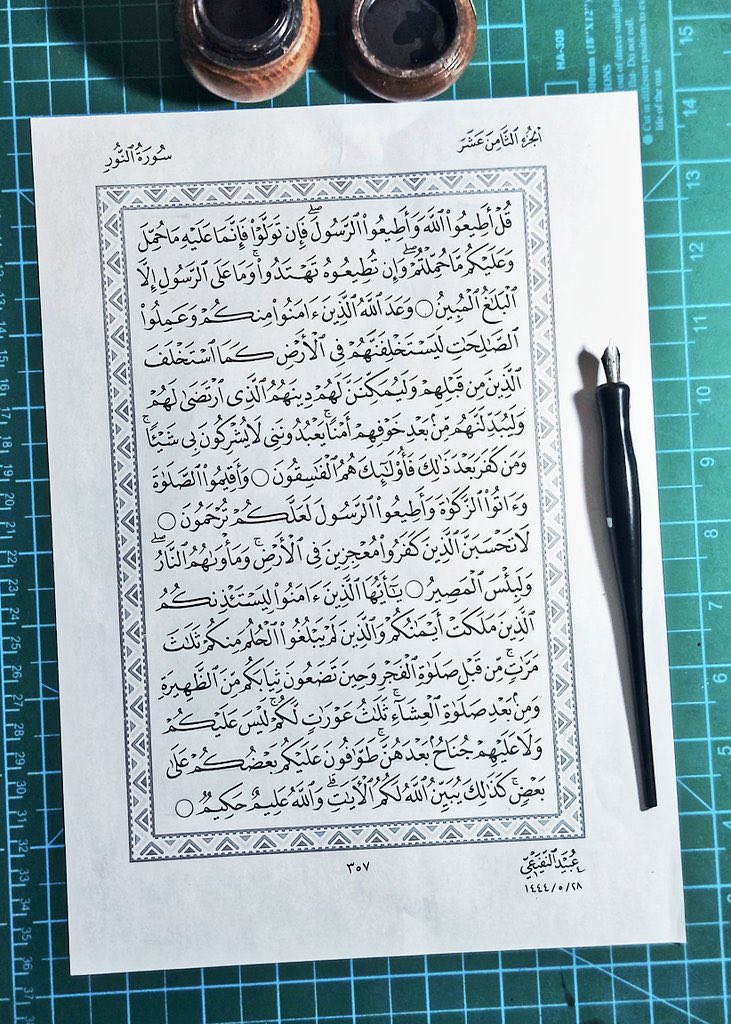 الجُزْءُ الثَّامِنَ عَشَرَ
سُورَةُ النُّورِ
قُلْ أَطِيعُوا۟ ٱللَّهَ وَأَطِيعُوا۟ ٱلرَّسُولَ ۖ فَإِن تَوَلَّوْا۟ فَإِنَّمَا عَلَيْهِ مَا حُمِّلَ
وَعَلَيْكُم مَّا حُمِّلْتُمْ ۖ وَإِن تُطِيعُوهُ تَهْتَدُوا۟ ۚ وَمَا عَلَى ٱلرَّسُولِ إِلَّا
ٱلْبَلَٰغُ ٱلْمُبِينُ ○ وَعَدَ ٱللَّهُ ٱلَّذِينَ ءَامَنُوا۟ مِنكُمْ وَعَمِلُوا۟
ٱلصَّٰلِحَٰتِ لَيَسْتَخْلِفَنَّهُمْ فِى ٱلْأَرْضِ كَمَا ٱسْتَخْلَفَ
ٱلَّذِينَ مِن قَبْلِهِمْ وَلَيُمَكِّنَنَّ لَهُمْ دِينَهُمُ ٱلَّذِى ٱرْتَضَىٰ لَهُمْ
وَلَيُبَدِّلَنَّهُم مِّنۢ بَعْدِ خَوْفِهِمْ أَمْنًا ۚ يَعْبُدُونَنِى لَا يُشْرِكُونَ بِى شَيْـًٔا ۚ
وَمَن كَفَرَ بَعْدَ ذَٰلِكَ فَأُو۟لَٰٓئِكَ هُمُ ٱلْفَٰسِقُونَ ○ وَأَقِيمُوا۟ ٱلصَّلَوٰةَ
وَءَاتُوا۟ ٱلزَّكَوٰةَ وَأَطِيعُوا۟ ٱلرَّسُولَ لَعَلَّكُمْ تُرْحَمُونَ ○
لَا تَحْسَبَنَّ ٱلَّذِينَ كَفَرُوا۟ مُعْجِزِينَ فِى ٱلْأَرْضِ ۚ وَمَأْوَىٰهُمُ ٱلنَّارُ ۖ
وَلَبِئْسَ ٱلْمَصِيرُ ○ يَٰٓأَيُّهَا ٱلَّذِينَ ءَامَنُوا۟ لِيَسْتَـْٔذِنكُمُ
ٱلَّذِينَ مَلَكَتْ أَيْمَٰنُكُمْ وَٱلَّذِينَ لَمْ يَبْلُغُوا۟ ٱلْحُلُمَ مِنكُمْ ثَلَٰثَ
مَرَّٰتٍ ۚ مِّن قَبْلِ صَلَوٰةِ ٱلْفَجْرِ وَحِينَ تَضَعُونَ ثِيَابَكُم مِّنَ ٱلظَّهِيرَةِ
وَمِنۢ بَعْدِ صَلَوٰةِ ٱلْعِشَآءِ ۚ ثَلَٰثُ عَوْرَٰتٍ لَّكُمْ ۚ لَيْسَ عَلَيْكُمْ
وَلَا عَلَيْهِمْ جُنَاحٌۢ بَعْدَهُنَّ ۚ طَوَّٰفُونَ عَلَيْكُم بَعْضُكُمْ عَلَىٰ
بَعْضٍ ۚ كَذَٰلِكَ يُبَيِّنُ ٱللَّهُ لَكُمُ ٱلْءَايَٰتِ ۗ وَٱللَّهُ عَلِيمٌ حَكِيمٌ ○
٣٥٧
عُبَيْد النُّفَيْعِي
١٤٤٤/٥/٢٨
HA-308